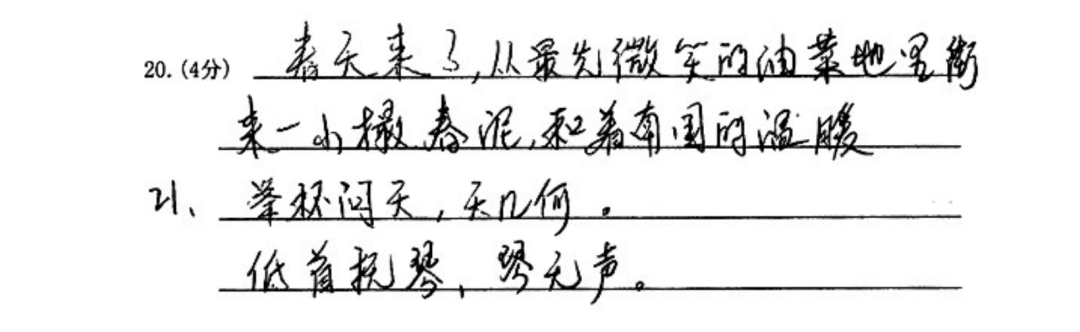 20.(4分) 春天来了,从最先微笑的油菜地里衔
来一小撮春泥,和着南国的温暖
21、举杯问天,天几何。
低首抚琴、琴无声。